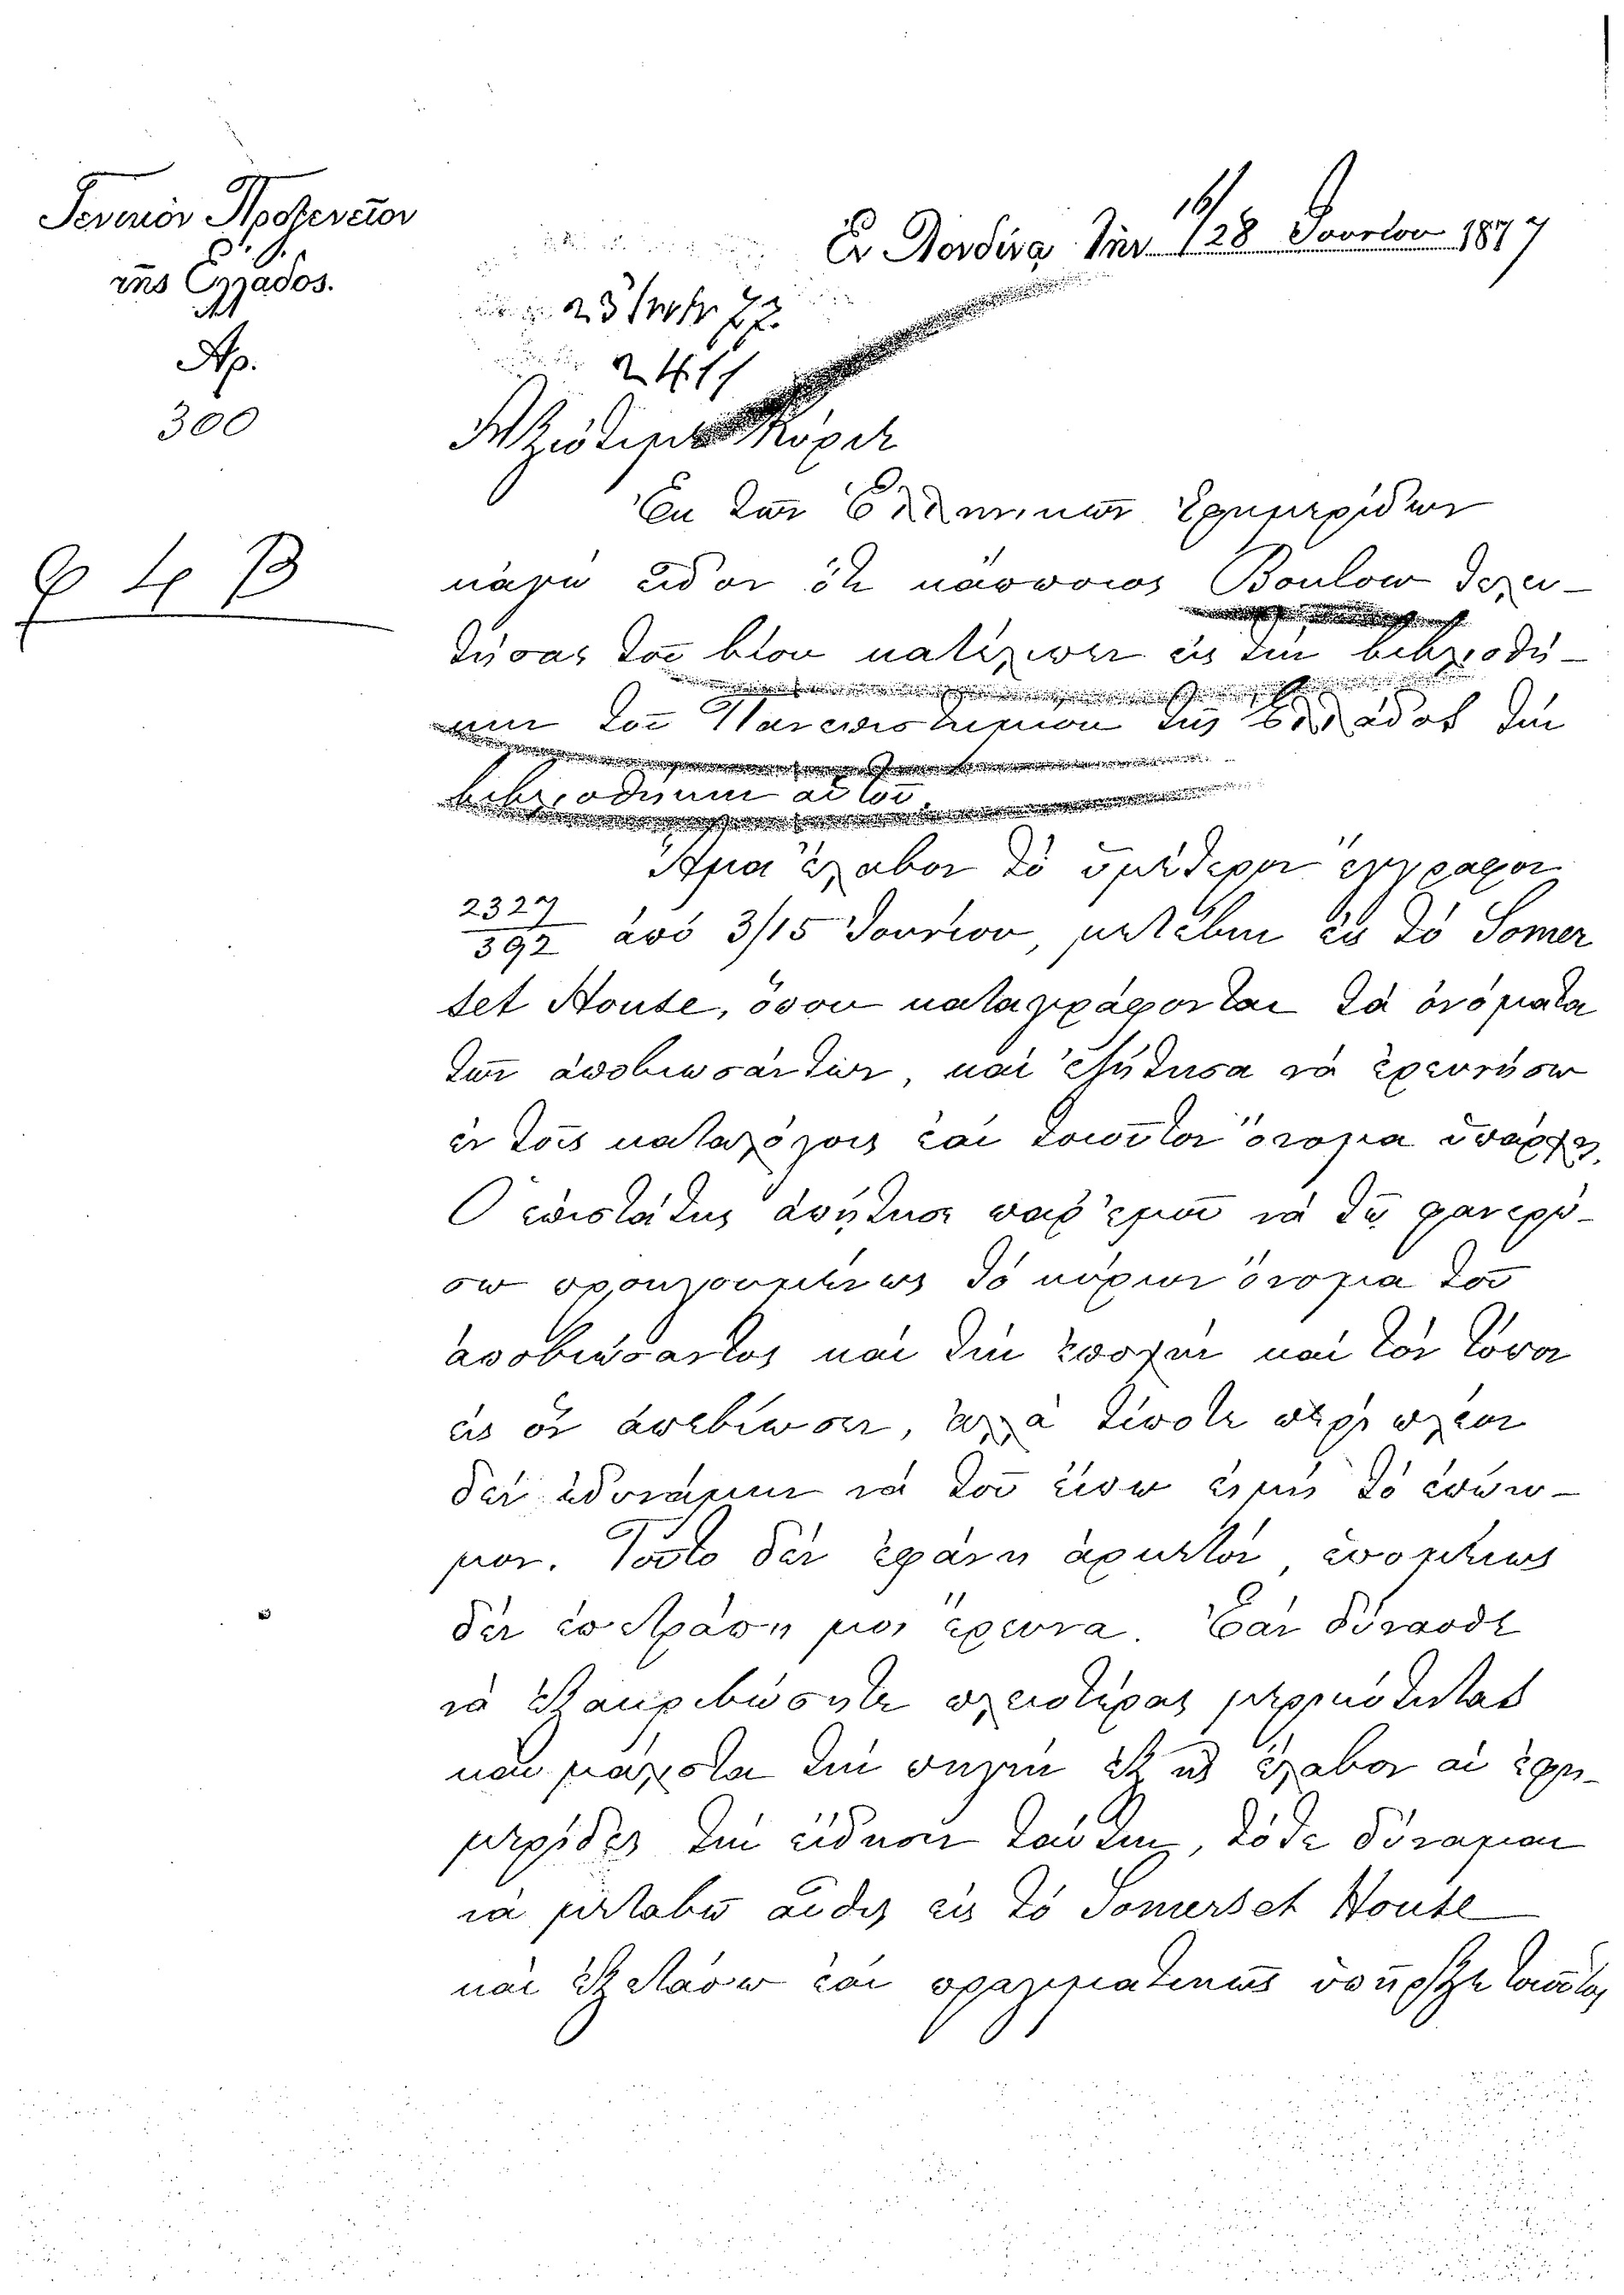 Γενικόν Προξενεῖον
τῆς Ἑλλάδος.
Ἀρ.
300
Ἐν Λονδίνῳ τὴν 16/28 Ἰουνίου 1877
2411
Ἀξιότιμε Κύριε
Ἐκ τῶν Ἑλληνικῶν ἐφημερίδων
κἀγὼ εἶδον ὅτι κάποιος Boulow τελευ-
τήσας τοῦ βίου κατέλιπεν εἰς τὴν βιβλιοθή-
κην τοῦ Πανεπιστημίου τῆς Ἑλλάδος τὴν
βιβλιοθήκην αὐτοῦ.
Ἅμα ἔλαβον τὸ ὑμέτερον ἔγγραφον
2327/392 ἀπὸ 3/15 Ἰουνίου, μετέβην εἰς τὸ Somer
set House, ὅπου καταγράφονται τὰ ὀνόματα
τῶν ἀποβιωσάντων, καὶ ἐζήτησα νὰ ἐρευνήσω
ἐν τοῖς καταλόγοις ἐὰν τοιοῦτον ὄνομα ὑπάρχῃ.
Ὁ ἐπιστάτης ἀπῄτησε παρ' ἐμοῦ νὰ τῷ φανερώ-
σω προηγουμένως τὸ κύριον ὄνομα τοῦ
ἀποβιώσαντος καὶ τὴν ἐποχὴν καὶ τὸν τόπον
εἰς ὃν ἀπεβίωσεν, ἀλλὰ τίποτε περιπλέον
δὲν ἐδυνάμην νὰ τοῦ εἴπω εἰμὴ τὸ ἐπώνυ-
μον. Τοῦτο δὲν ἐφάνη ἀρκετόν, ἑπομένως
δὲν ἐπετράπη μοι ἔρευνα. Ἐὰν δύνασθε
νὰ ἐξακριβώσητε πλειοτέρας μερικότητας
καὶ μάλιστα τὴν πηγὴν ἐξ ἧς ἔλαβον αἱ ἐφη-
μερίδες τὴν εἴδησιν ταύτην, τότε δύναμαι
νὰ μεταβῶ αὖθις εἰς τὸ Somerset House
καὶ ἐξετάσω ἐὰν πραγματικῶς ὑπῆρξε τοιοῦτος